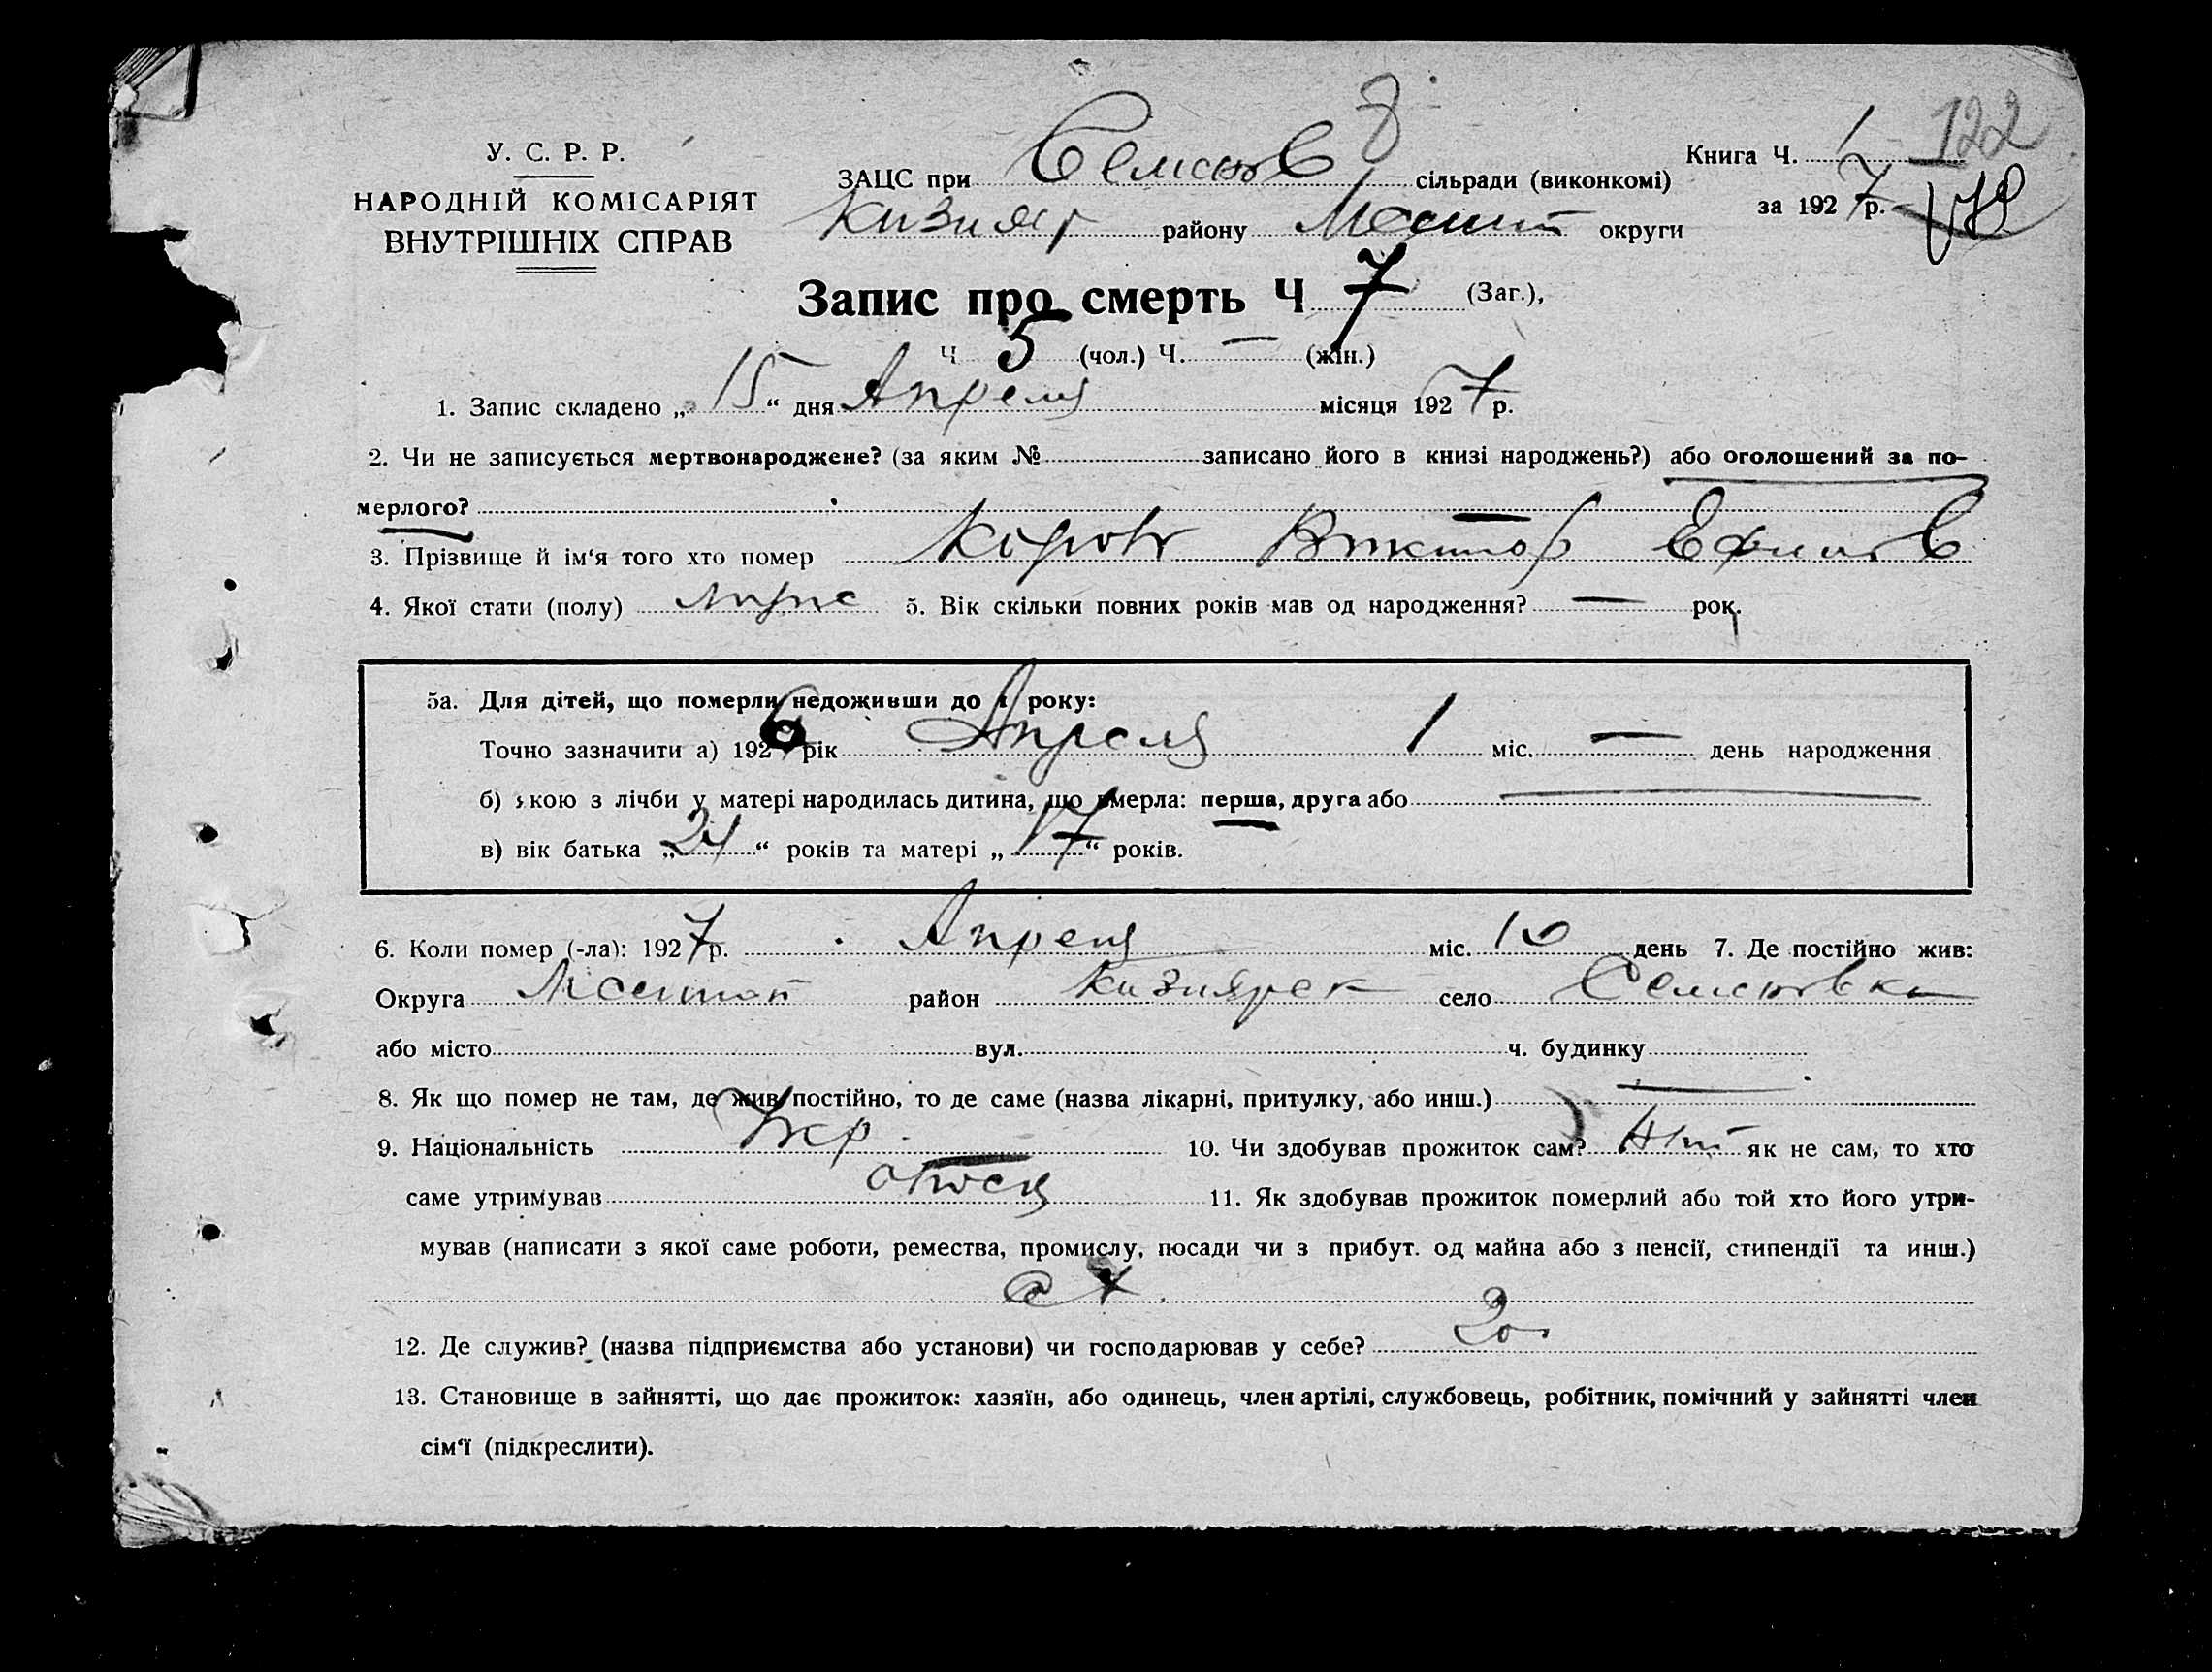 122
У. С. Р. Р.
НАРОДНІЙ КОМІСАРІЯТ
ВНУТРІШНІХ СПРАВ
Книга Ч. 1
за 1927 р.
ЗАЦС при сільради (виконкомі)
Кизияр району Мелит округи
Запис про смерть Ч 7 (Заг.),
Ч 5 (чол.) Ч. — (жін.)
1. Запис складено „ 15 “ дня Апреля місяця 1927 р.
2. Чи не записується мертвонароджене? (за яким № записано його в книзі народжень?) або оголошений за по-
мерлого? —
3. Прізвище й ім‘я того хто помер Виктор Ефимов
4. Якої стати (полу) 5. Вік скільки повних років мав од народження? — рок.
5а. Для дітей, що померли недоживши до 1 року:
Точно зазначити а) 1926 рік Апреля 1 міс. — день народження
б) якою з лічби у матері народилась дитина, що вмерла: перша, друга або —
в) вік батька „ 21 “ років та матері „ 17 “ років.
6. Коли помер (-ла): 1927 р. Апреля міс. 10 день 7. Де постійно жив:
Округа Мелитоп район Кизиярск село
або місто вул. ч. будинку
8. Як що помер не там, де жив постійно, то де саме (назва лікарні, притулку, або инш.) —
9. Національність Укр 10. Чи здобував прожиток сам? Нет як не сам, то хто
саме утримував отец 11. Як здобував прожиток померлий або той хто його утри-
мував (написати з якої саме роботи, ремества, промислу, посади чи з прибут. од майна або з пенсії, стипендії та инш.)
с х
12. Де служив? (назва підприємства або установи) чи господарював у себе?
13. Становище в зайнятті, що дає прожиток: хазяїн, або одинець, член артілі, службовець, робітник, помічний у зайнятті член
сім‘ї (підкреслити).